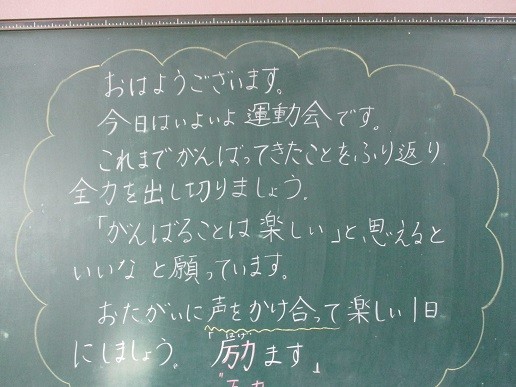 おはようございます。
今日はいよいよ運動会です。
これまでがんばってきたことを、ふり返り
全力を出し切りましょう。
「がんばることは楽しい」と思えると
いいなと願っています。
おたがいに声をかけ合って楽しい1日
にしましょう。「励ます」
はげ